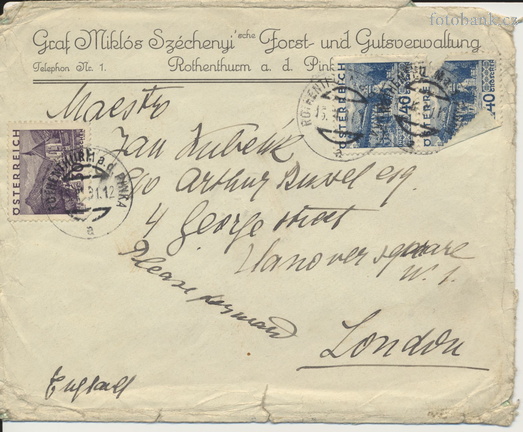 fotobanka.cz
Graf Miklós Széchenyi'sche Forst- und Gutsverwaltung
Telephon Nr. 1. Rothenthurm a. d. Pink
ÖSTERREICH
ÖSTERREICH
40
ÖSTERREICH
ROTHENTHURM a.d. PINKA
31.12
a
Maestro
Jan Kubelik
c/o Arthur Bruvel esq.
4 George street
Hanover square
W. 1.
Please forward
London
England